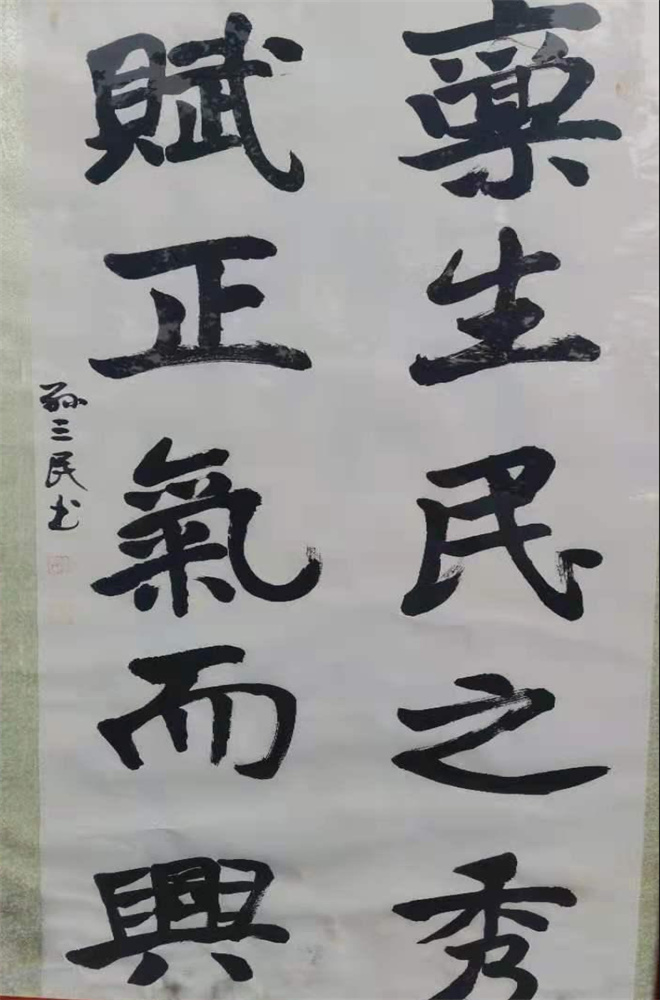 稟生民之秀
賦正氣而興
孫三民书